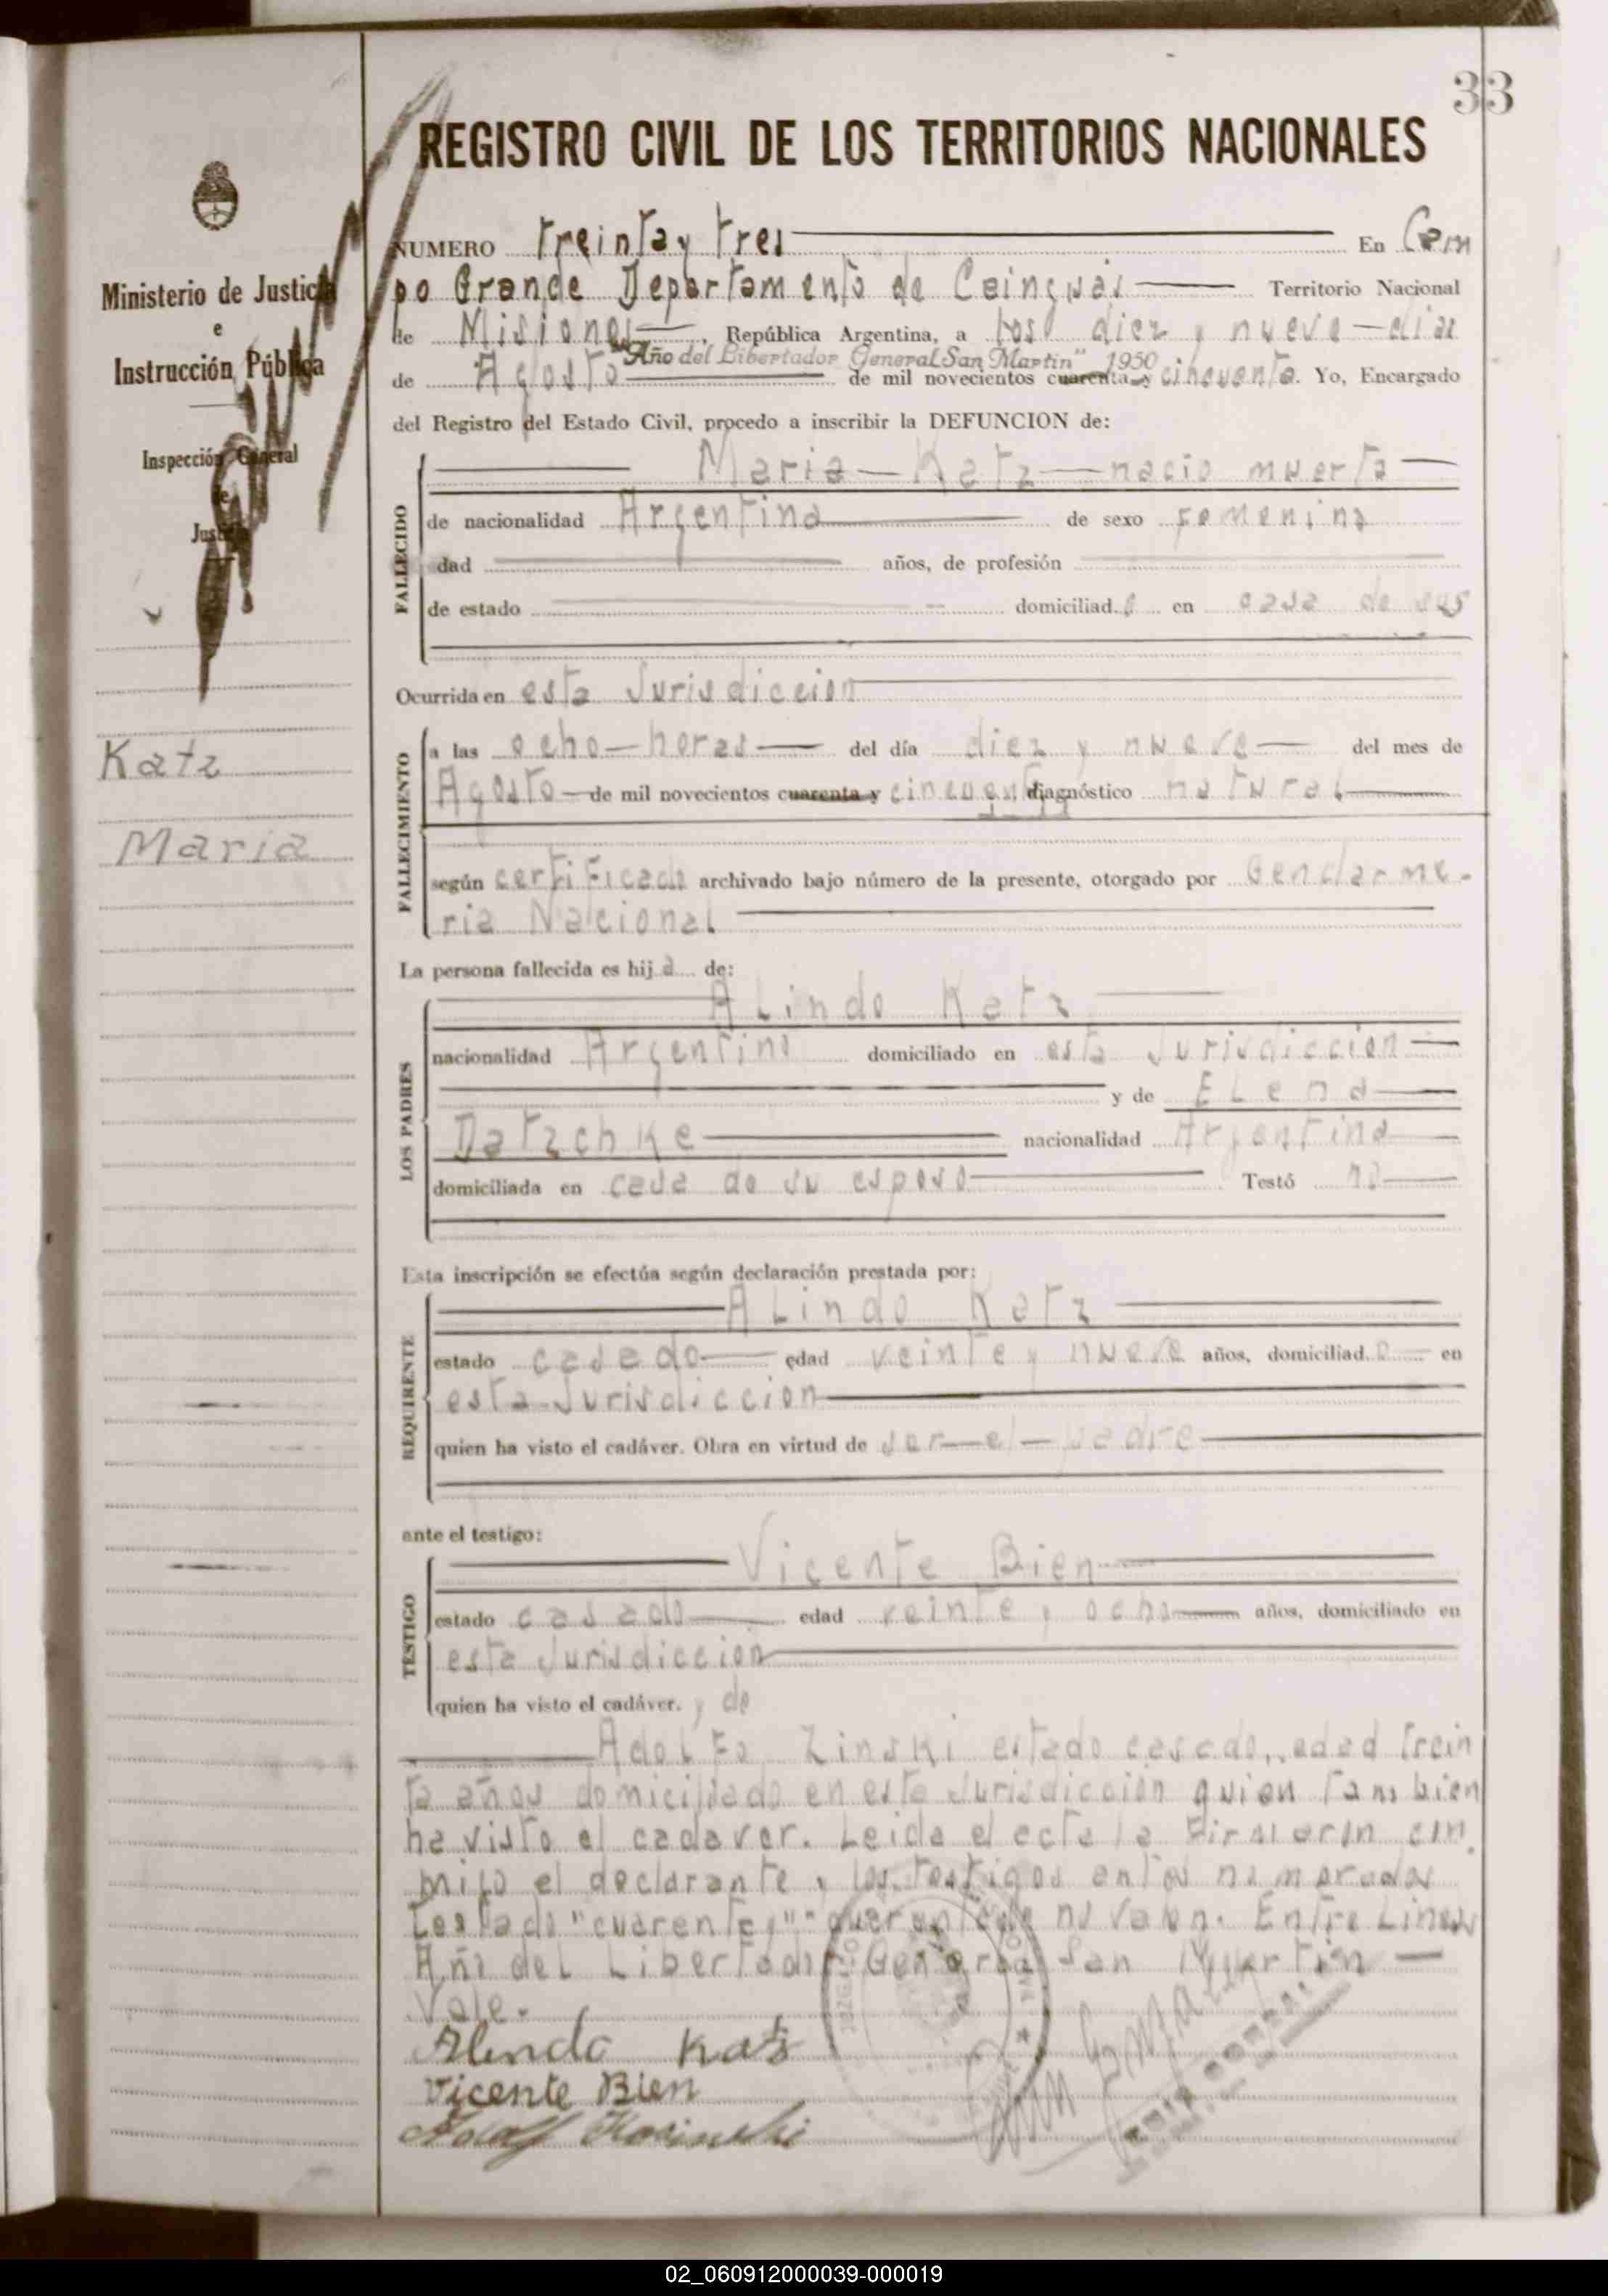 33
REGISTRO CIVIL DE LOS TERRITORIOS NACIONALES
Ministerio de Justicia
e
Instrucción Pública
Inspección General
de
Justicia
Katz
Maria
NUMERO treinta y tres En Cam
po Grande Departamento de Cainguás Territorio Nacional
de Misiones, República Argentina, a los diez y nueve dias
"Año del Libertador General San Martin" 1950
de Agosto de mil novecientos cuarenta y cincuenta. Yo, Encargado
del Registro del Estado Civil, procedo a inscribir la DEFUNCION de:
FALLECIDO
Maria Katz nacio muerta
de nacionalidad Argentina de sexo femenino
dad años, de profesión
de estado domiciliad en casa de sus
Ocurrida en esta Jurisdiccion
FALLECIMIENTO
a las ocho horas del día diez y nueve del mes de
Agosto de mil novecientos cuarenta y cincuenta, diagnóstico natural
según certificado archivado bajo número de la presente, otorgado por Gendarme-
ria Nacional
La persona fallecida es hija de:
LOS PADRES
Alindo Katz
nacionalidad Argentino domiciliado en esta Jurisdiccion
y de Elena
Datzchke nacionalidad Argentina
domiciliada en casa de su esposo Testó no
Esta inscripción se efectúa según declaración prestada por:
REQUIRENTE
Alindo Katz
estado casado edad veinte y nueve años, domiciliado en
esta Jurisdiccion
quien ha visto el cadáver. Obra en virtud de ser el padre
ante el testigo:
TESTIGO
Vicente Bien
estado casado edad veinte y ocho años, domiciliado en
esta Jurisdiccion
quien ha visto el cadáver. y de
Adolfo Zinski estado casado, edad trein
ta años domiciliado en esta Jurisdiccion quien tambien
ha visto el cadaver. Leida el acta la firmaron con
migo el declarante y los testigos antes nombrados
Testado "cuarenta y" no valen. Entre Lineas
Año del Libertador General San Martin
Vale.
Alindo Katz
Vicente Bien
Adolf